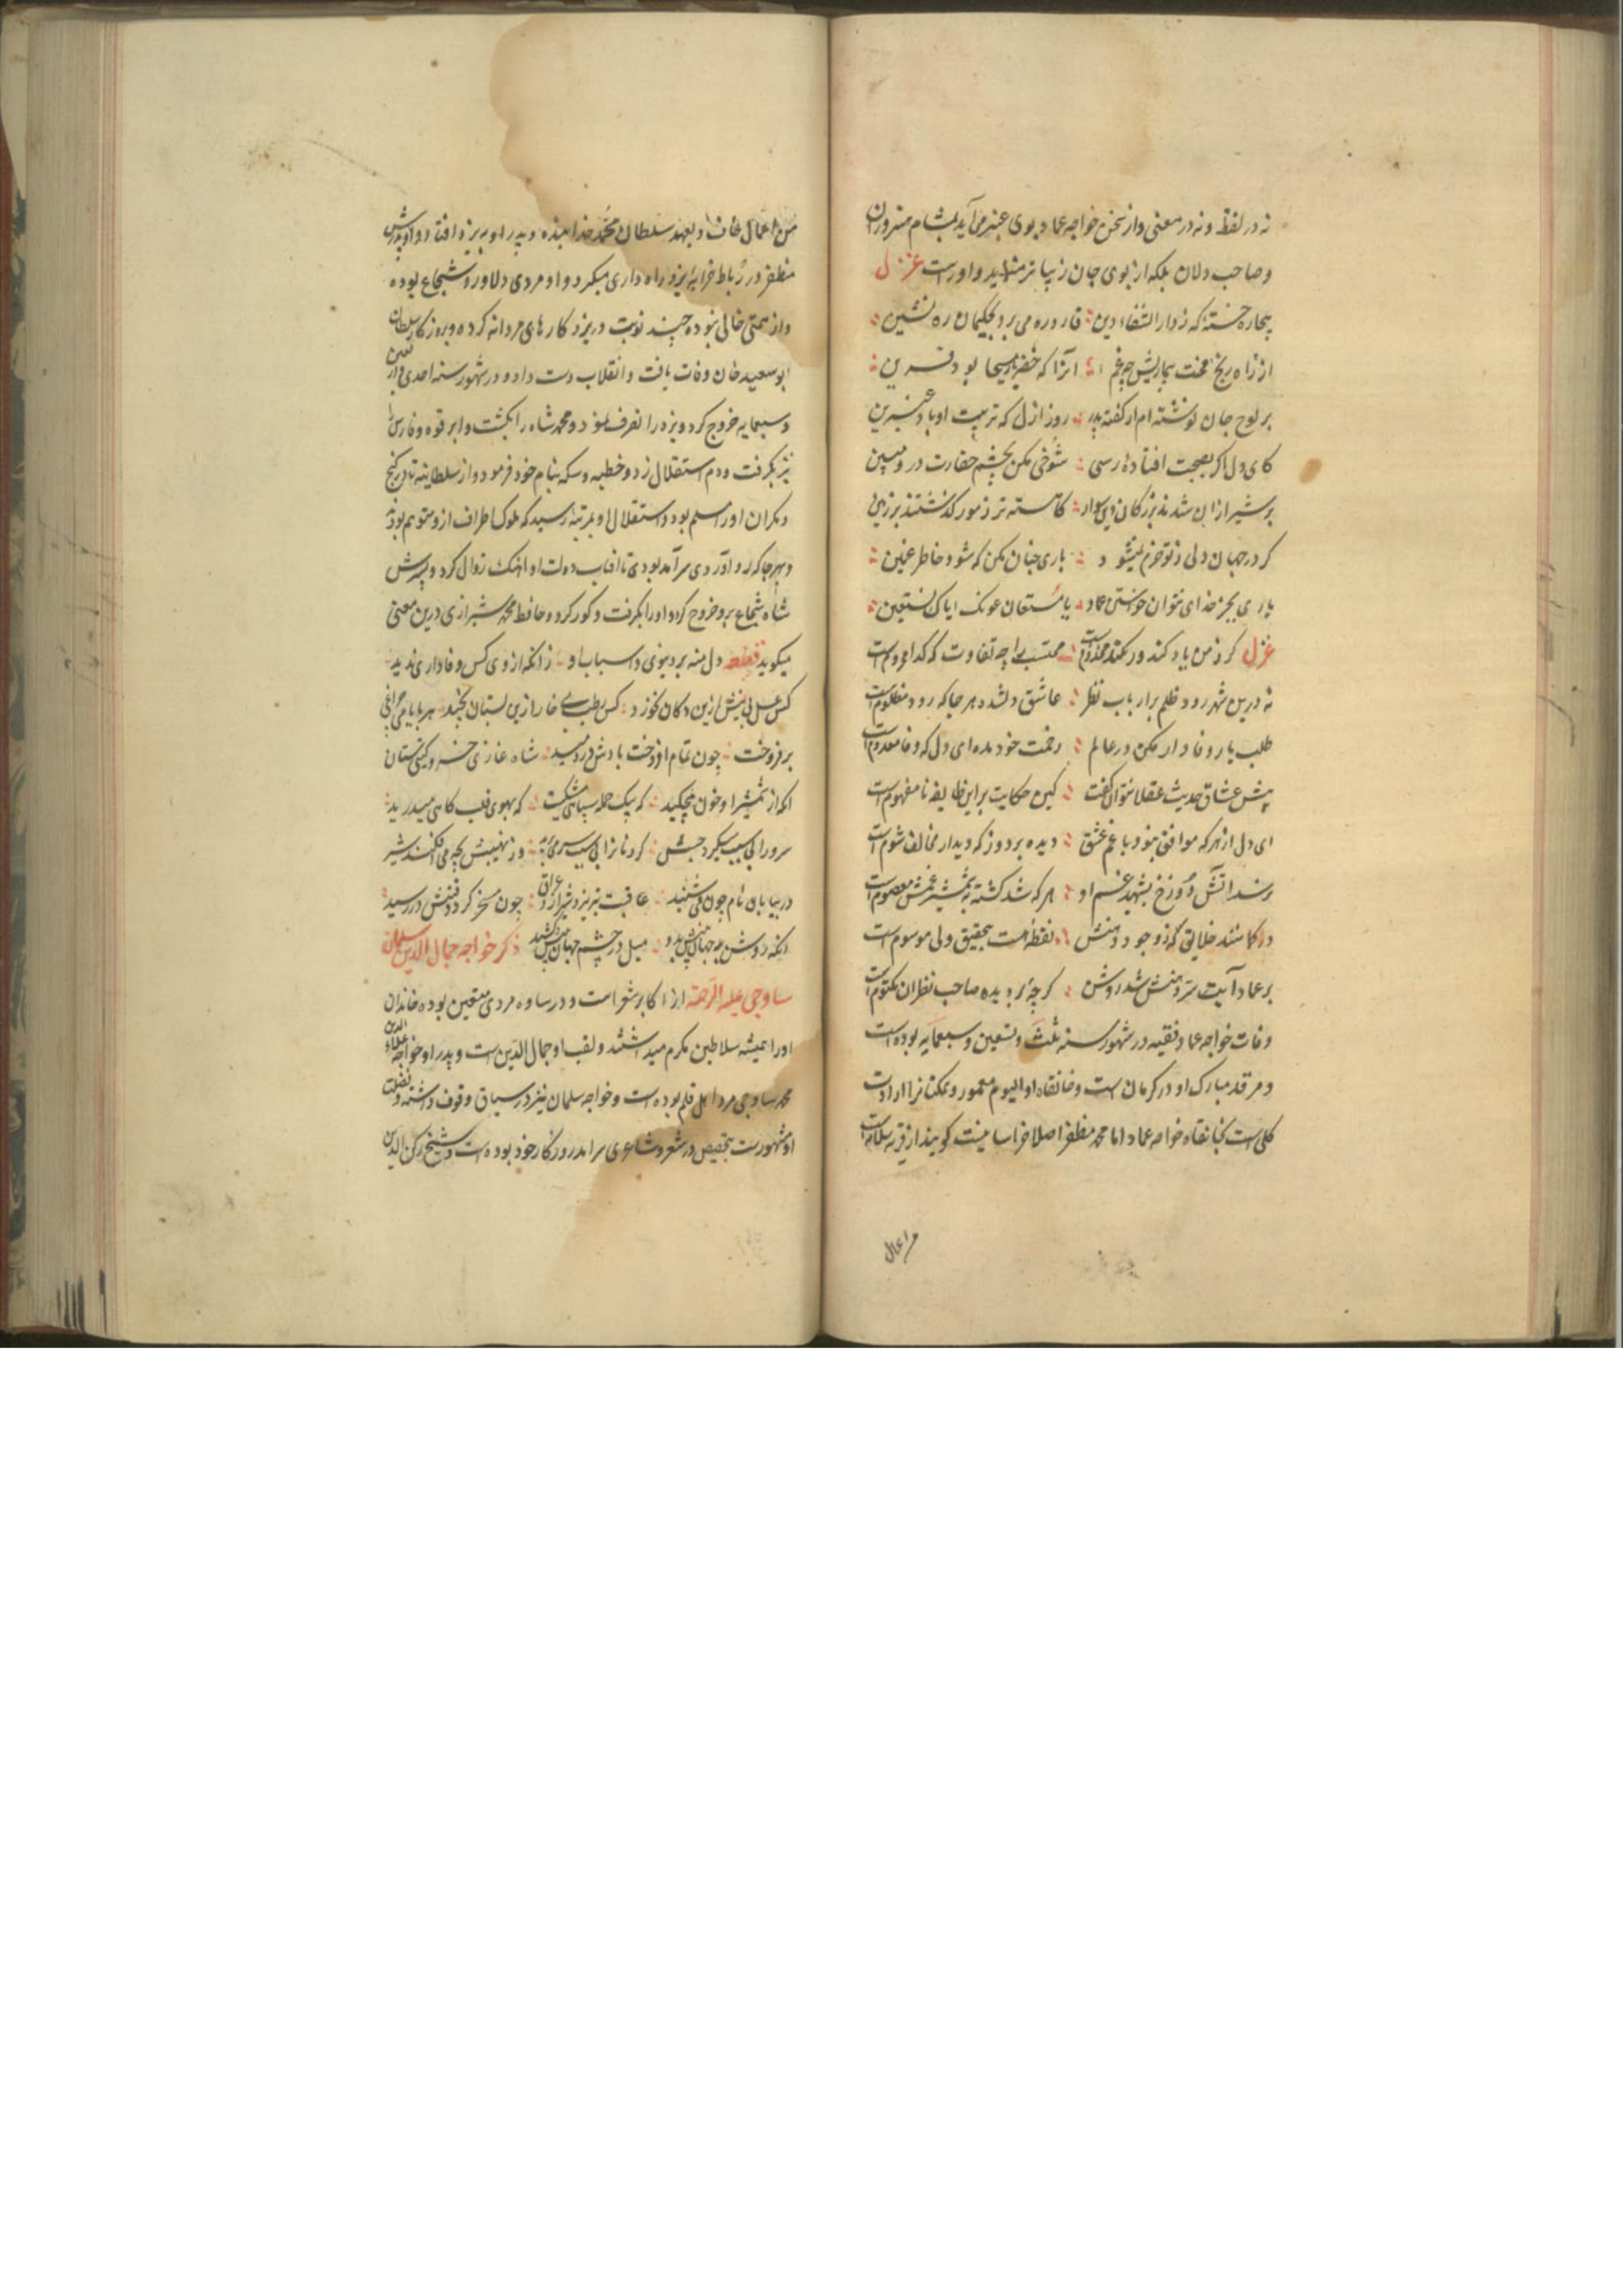 نه در لفظ و نه در معنی و از سخن خواجه عماد بوی عبیر می آید بمشام هنروران
و صاحب دلان بلکه از بوی جان زیباتر مینماید و اوراست غزل
بیچاره خسته که ز دار الشفاء دین قاروره می برد بحکیمان ره نشین
از راه رنج و محنت بیماریش چه غم آنرا که خضر یا مسیحا بود قرین
بر لوح جان نوشته ام از گفته پدر روز ازل که تربیت او باد عنبرین
کای دل اگر بصحبت افتاده رسی شوخی مکن بچشم حقارت در و مبین
بر شیر از ان شدند بزرگان دین سوار کاهسته تر ز مور گذشتند بر زمین
گر در جهان دلی ز تو خرم نمیشود باری چنان مکن که شود خاطر غمین
یاری بجز خدای نتوان خواستن عماد یا مستعان عونک ایاک نستعین
غزل گر ز من یاد کند ور نکند مخدومست محتسب را چه تفاوت که گدا محرومست
نه درین شهر رود ظلم بر ارباب نظر عاشق دلشده هر جا که رود مظلومست
طلب یار وفادار مکن در عالم زحمت خود مده ای دل که وفا معدومست
پیش عشاق حدیث عقلا نتوان گفت کین حکایت بر این طایفه نامفهومست
ای دل از هر که موافق نبود با غم عشق دیده بردوز که دیدار مخالف شومست
نرسد آتش دوزخ بشهید غم او هر که شد کشته بشمشیر غمش معصومست
در گمانند خلایق که ز وجود دهنش نقطه هست بتحقیق ولی موسومست
بر عماد آیت سر دهنش شد روشن گرچه بر دیده صاحب نظران مکتومست
وفات خواجه عماد فقیه در شهور سنه ثلث و تسعین و سبعمایه بوده است
و مرقد مبارک او در کرمان است و خانقاه او الیوم معمور و متمکنانرا ارادت
کلی است بخانقاه خواجه عماد اما محمد مظفر اصلا خراسانیست گویند از قریه سلامه است
من اعمال
من اعمال خاف و بعهد سلطان محمد خدابنده و پدر او به یزد افتاد و او و پدرش
مظفر در رباط خرابه یزد راه داری میکرد و او مردی دلاور و شجاع بوده
و از همتی خالی نبوده چند نوبت در یزد کارهای مردانه کرده و بروزگار سلطان
ابو سعید خان وفات یافت و انقلاب دست داد و در شهور سنه احدی و اربعین
و سبعمایه خروج کرد و یزد را تصرف نمود و محمد شاه را بکشت و ابرقوه و فارس را
نیز بگرفت و دم استقلال زد و خطبه و سکه بنام خود فرمود و از سلطانیه تا در کیج
و مکران او را مسلم بود و استقلال او بمرتبه رسید که ملوک اطراف از و متوهم بودند
و بهر جا که رو آوردی سرآمد بودی تا آفتاب دولت او آهنک زوال کرد و پسرش
شاه شجاع برو خروج کرد و او را بگرفت و کور کرد و حافظ محمد شیرازی درین معنی
میگوید قطعه دل منه بر دنیوی و اسباب او زانکه از وی کس وفاداری ندید
کس عسل بی نیش ازین دکان نخورد کس رطب بی خار ازین بستان نچید هر بایامی چراغی
بر فروخت چون تمام افروخت بادش در دمید شاه غازی خسرو کیتی ستان
انکه از شمشیر او خون میچکید که بیک حمله سپاهی شکست که بهوی قلب کاهی میدرید
سرورانرا بی سبب میکرد حبش کردنانرا بی سبب سر می برید وز نهیبش پنجه می افکند شیر
در بیابان نام چون می شنید عاقبت تبریز و شیراز و عراق چون مسخر کرد وقتش در رسید
انکه روشن بد جهان بینش بدو میل در چشم جهان بینش کشید ذکر خواجه جمال الدین سلمان
ساوجی علیه الرحمة از اکابر شعراست و در ساوه مردی متعین بوده خاندان
او را همیشه سلاطین مکرم میداشتند و لقب او جمال الدین است و پدر او خواجه علاء الدین
محمد ساوجی مرد اهل قلم بوده است و خواجه سلمان نیز در سیاق وقوف داشته و فضیلت
او مشهورست بتخصیص در شعر و شاعری سرآمد روزگار خود بوده است و شیخ رکن الدین